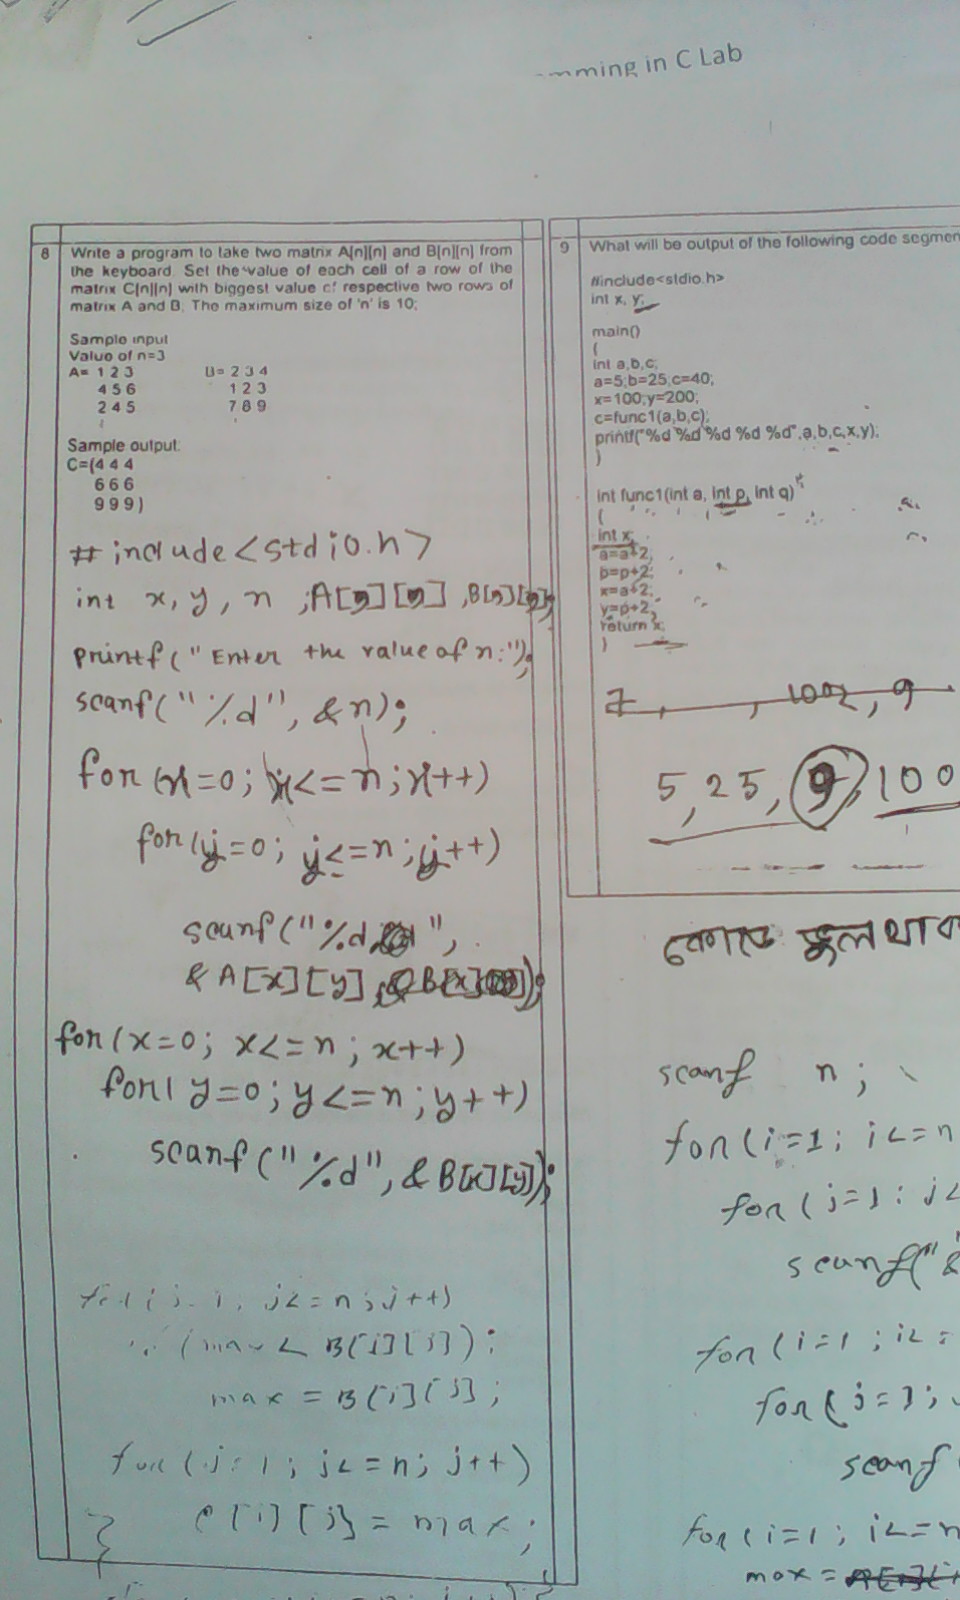 mming in C Lab
8 Write a program to take two matrix A[n][n] and B[n][n] from
the keyboard. Set the value of each cell of a row of the
matrix C[n][n] with biggest value of respective two rows of
matrix A and B; The maximum size of 'n' is 10;
Sample input
Value of n=3
A= 1 2 3 B= 2 3 4
4 5 6 1 2 3
2 4 5 7 8 9
Sample output:
C=(4 4 4
6 6 6
9 9 9)
# include <stdio.h>
int x, y, n ; A[ ][ ] , B[ ][ ];
printf(" Enter the value of n:");
scanf(" %d", &n);
for (x=0; x<=n; x++)
for(y=0; y<=n; y++)
scanf("%d ",
& A[x][y]
for(x=0; x<=n; x++)
for( y=0; y<=n; y++)
scanf(" %d", & B[x][y]);
j<=n; j++)
(max < B[i][j]);
max = B[i][j];
for (j=1; j<=n; j++)
c[i][j] = max;
}
9 What will be output of the following code segmen
#include<stdio.h>
int x, y;
main()
{
int a,b,c;
a=5;b=25;c=40;
x=100;y=200;
c=func1(a,b,c);
printf("%d %d %d %d %d",a,b,c,x,y);
}
int func1(int a, int p, int q)
{
int x;
a=a+2;
p=p+2;
x=a+2;
y=p+2;
return x;
}
7, , 1002, 9
5, 25, 9, 100
কোডে ভুল থাক
scanf n;
for (i=1; i<=n
for ( j=1: j<
scanf("&
for (i=1 ; i<=
for ( j=1;
scanf
for (i=1 ; i<=n
max =